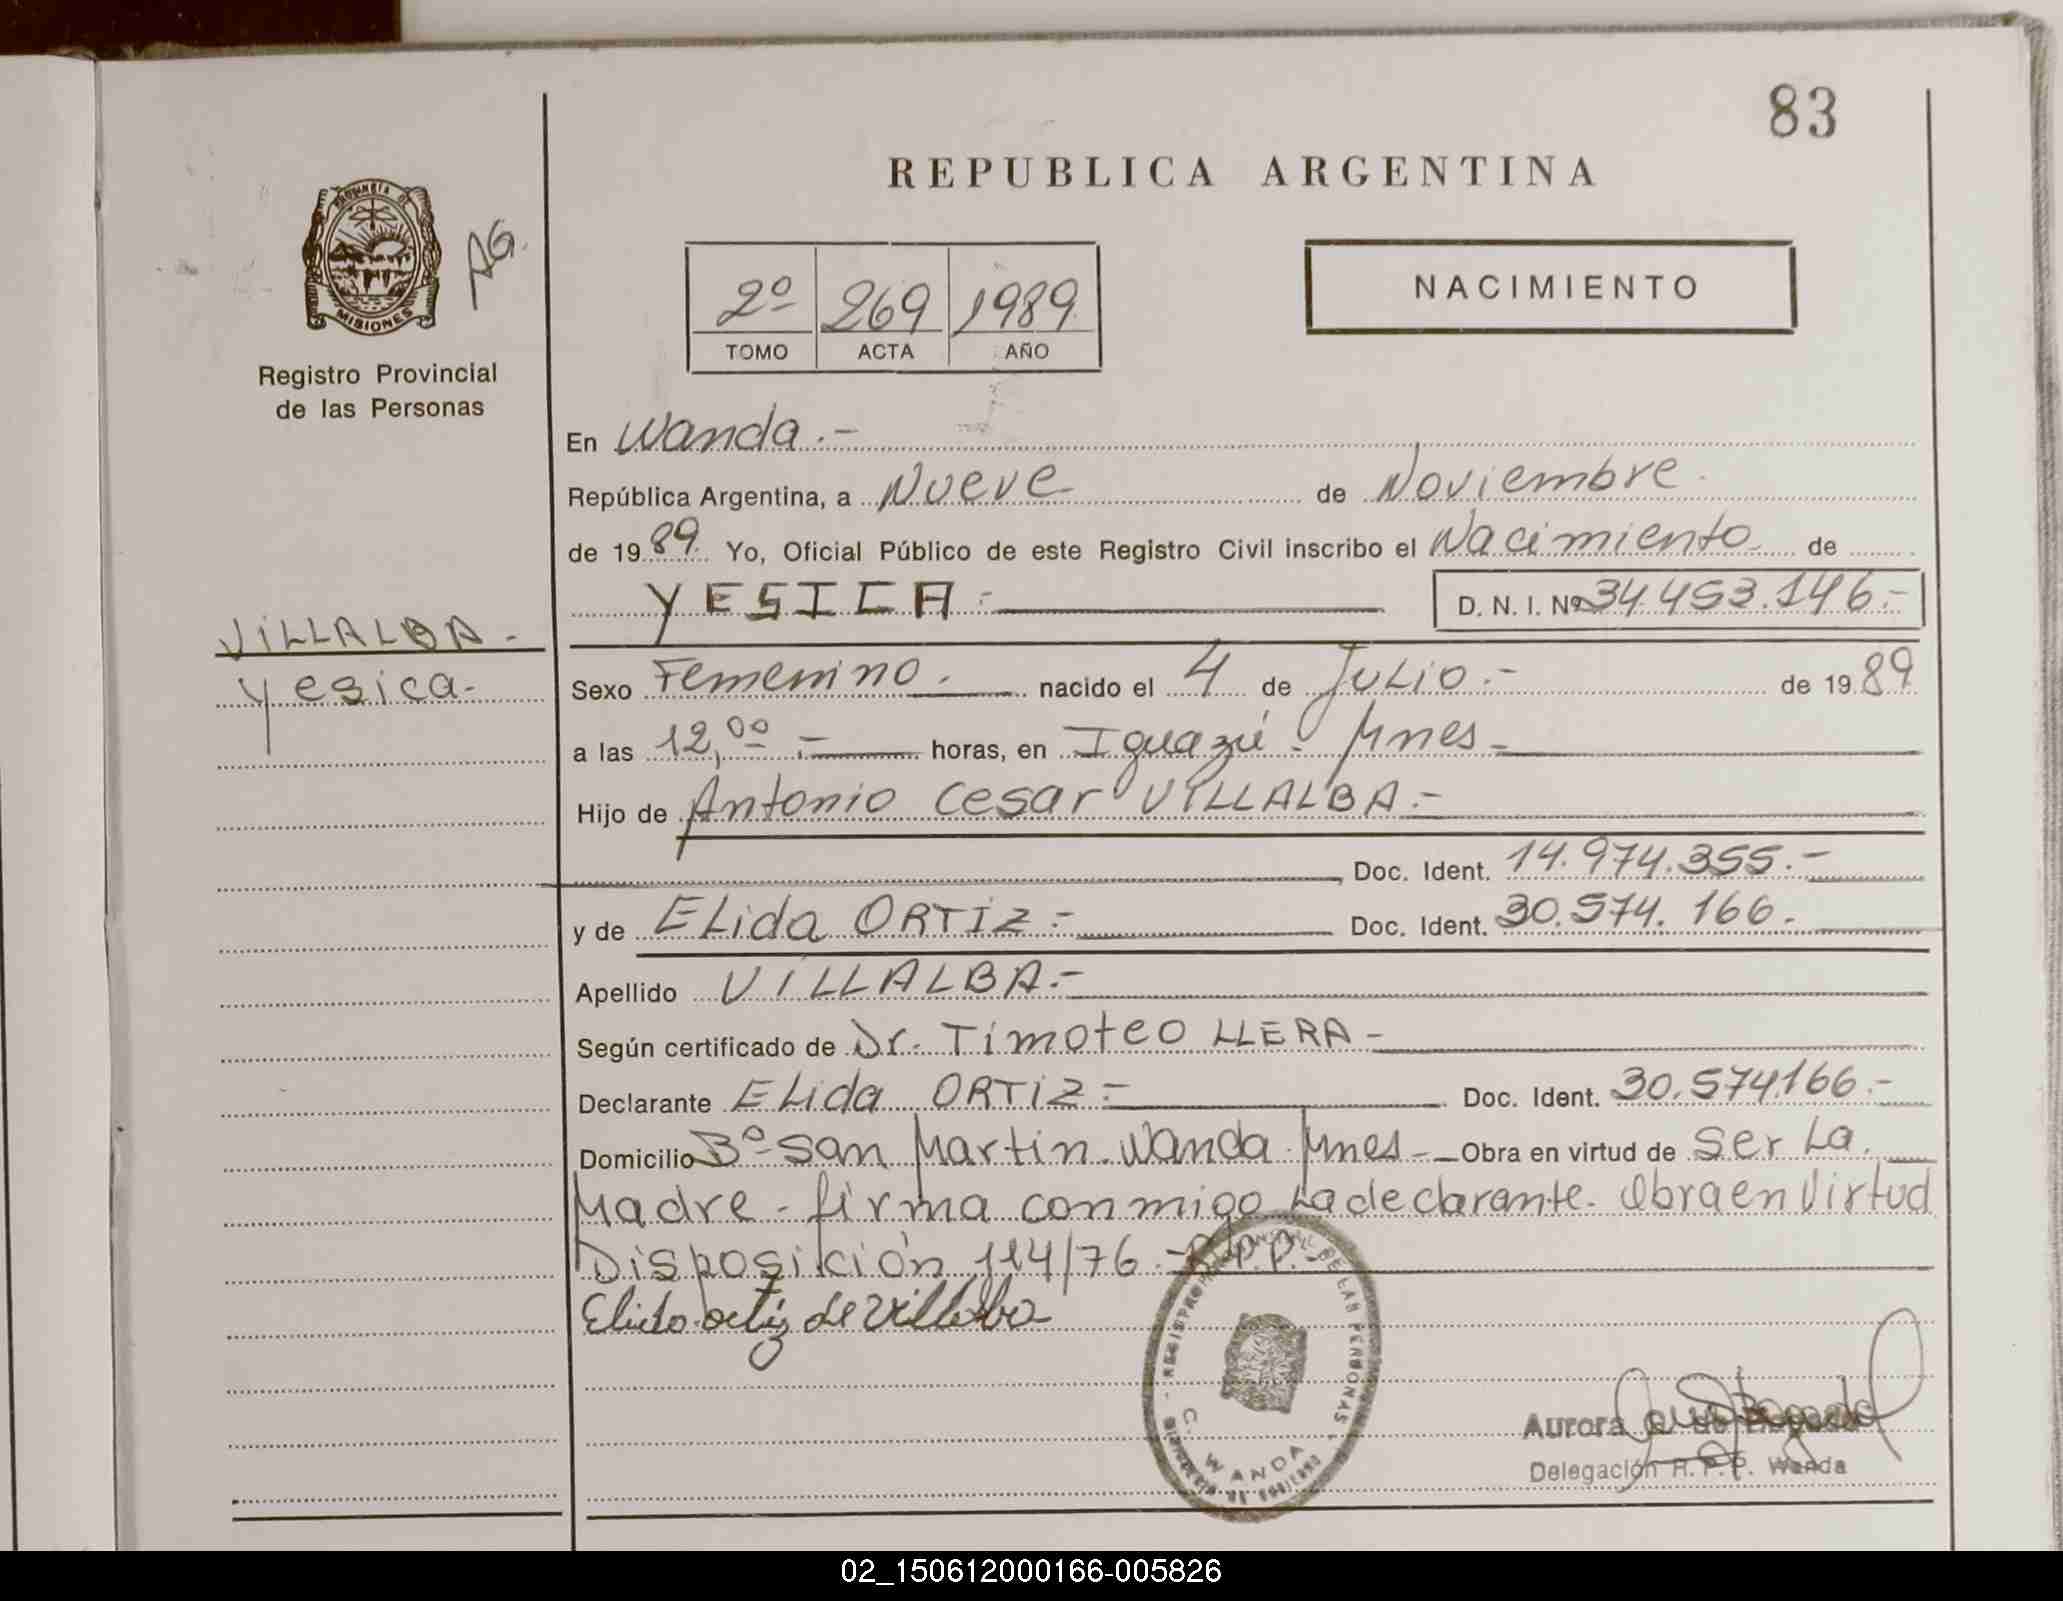 83
REPUBLICA ARGENTINA
PROVINCIA DE
MISIONES
AG.
Registro Provincial
de las Personas
2º 269 1989
TOMO ACTA AÑO
NACIMIENTO
En Wanda.-
República Argentina, a Nueve de Noviembre.
de 1989. Yo, Oficial Público de este Registro Civil inscribo el Nacimiento de
YESICA.- D. N. I. Nº 34.453.146.-
VILLALBA.-
Yesica.-
Sexo Femenino. nacido el 4 de Julio.- de 1989
a las 12,00.- horas, en Iguazú - Mnes -
Hijo de Antonio Cesar VILLALBA.-
Doc. Ident. 14.974.355.-
y de ELida ORTIZ.- Doc. Ident. 30.574.166.
Apellido VILLALBA.-
Según certificado de Dr. Timoteo LLERA -
Declarante ELida ORTIZ.- Doc. Ident. 30.574.166.-
Domicilio Bº San Martin. Wanda. Mnes - Obra en virtud de Ser La
Madre - firma conmigo La declarante. Obra en Virtud
Disposición 114/76.- R.P.P.-
Elida Ortiz de Villalba
REGISTRO PROVINCIAL DE LAS PERSONAS
WANDA
Aurora
Delegación R.P.P. Wanda
02_150612000166-005826